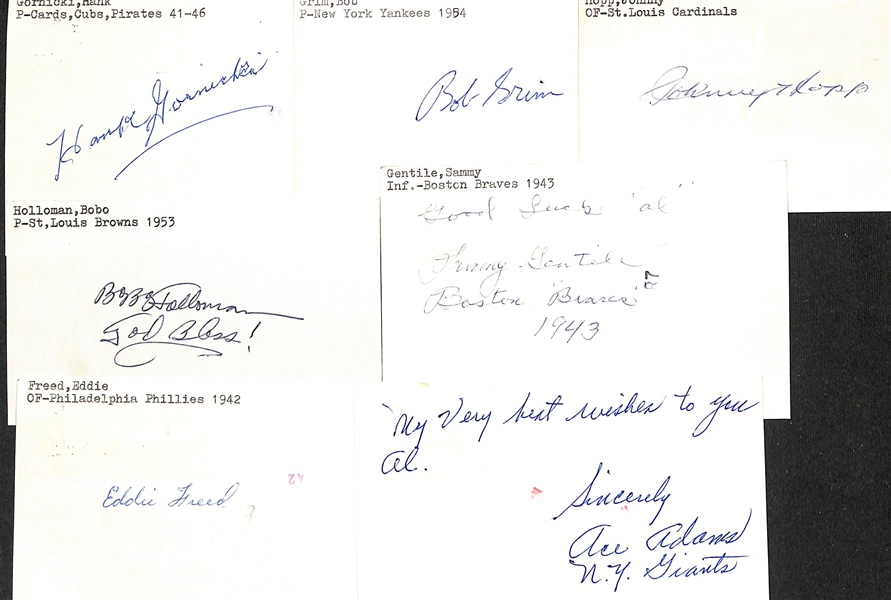 Gornicki,Hank
P-Cards,Cubs,Pirates 41-46
Hank Gornicki
Grim,Bob
P-New York Yankees 1954
Bob Grim
Hopp,Johnny
OF-St.Louis Cardinals
Johnny Hopp
Gentile,Sammy
Inf.-Boston Braves 1943
Good Luck "al"
Sammy Gentile
Boston "Braves"
1943
Holloman,Bobo
P-St,Louis Browns 1953
Bobo Holloman
God Bless!
Freed,Eddie
OF-Philadelphia Phillies 1942
Eddie Freed
42
My Very best wishes to you
Al.
Sincerely
Ace Adams
N.Y. Giants